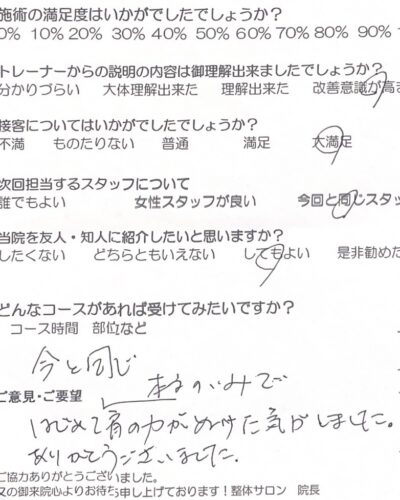 施術の満足度はいかがでしたでしょうか？
0% 10% 20% 30% 40% 50% 60% 70% 80% 90%
トレーナーからの説明の内容は御理解出来ましたでしょうか？
分かりづらい 大体理解出来た 理解出来た 改善意識が高ま
接客についてはいかがでしたでしょうか？
不満 ものたりない 普通 満足 大満足
次回担当するスタッフについて
誰でもよい 女性スタッフが良い 今回と同じスタッ
当院を友人・知人に紹介したいと思いますか？
したくない どちらともいえない してもよい 是非勧めた
どんなコースがあれば受けてみたいですか？
コース時間 部位など
今と同じ
ご意見・ご要望
のいみで
はじめて肩の力がぬけた気がしました。
ありがとうございました。
ご協力ありがとうございました。
又の御来院心よりお待ち申し上げております！整体サロン 院長